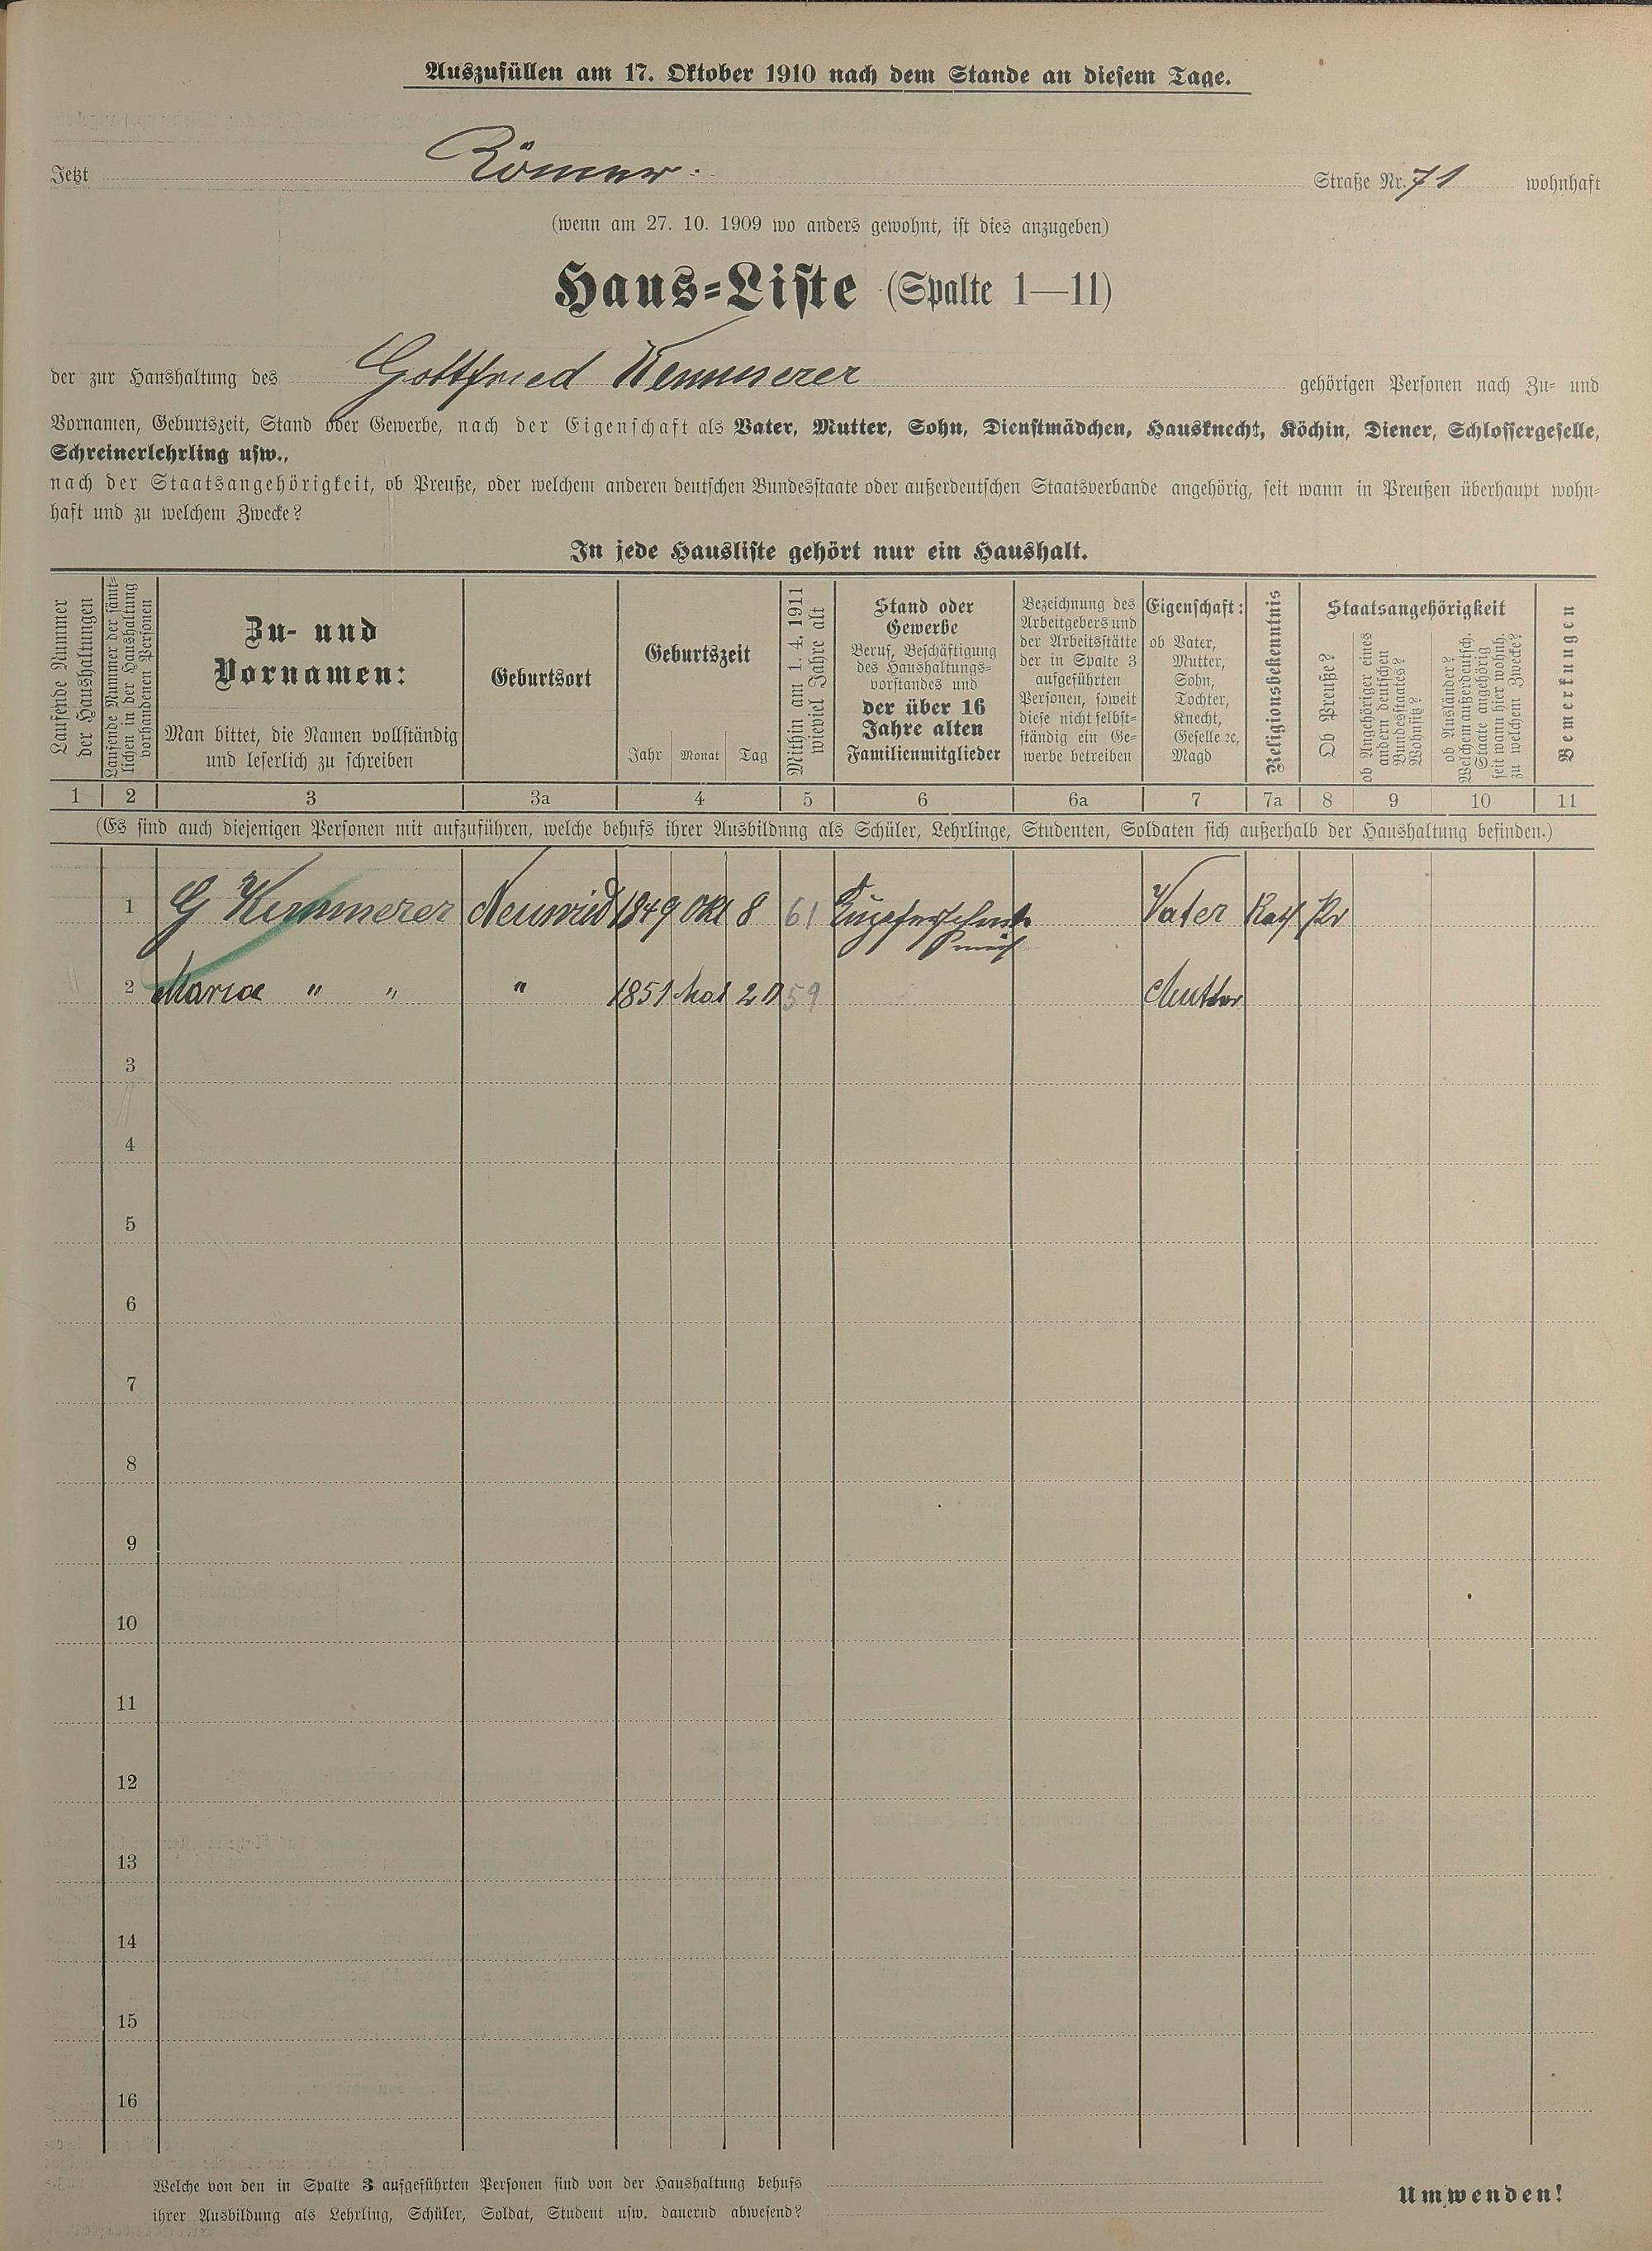 Auszufüllen am 17. Oktober 1910 nach dem Stande an diesem Tage.
Jetzt Römer. Straße Nr. 71 wohnhaft
(wenn am 27. 10. 1909 wo anders gewohnt, ist dies anzugeben)
Haus-Liste (Spalte 1—11)
der zur Haushaltung des Gottfried Kemmerer gehörigen Personen nach Zu- und
Vornamen, Geburtszeit, Stand oder Gewerbe, nach der Eigenschaft als Vater, Mutter, Sohn, Dienstmädchen, Hausknecht, Köchin, Diener, Schlossergeselle,
Schreinerlehrling usw.,
nach der Staatsangehörigkeit, ob Preuße, oder welchem anderen deutschen Bundesstaate oder außerdeutschen Staatsverbande angehörig, seit wann in Preußen überhaupt wohn-
haft und zu welchem Zwecke?
In jede Hausliste gehört nur ein Haushalt.
Laufende Nummer
der Haushaltungen
Laufende Nummer der sämt-
lichen in der Haushaltung
vorhandenen Personen
Zu- und
Vornamen:
Man bittet, die Namen vollständig
und leserlich zu schreiben
Geburtsort
Geburtszeit
Jahr Monat Tag
Mithin am 1. 4. 1911
wieviel Jahre alt
Stand oder
Gewerbe
Beruf, Beschäftigung
des Haushaltungs-
vorstandes und
der über 16
Jahre alten
Familienmitglieder
Bezeichnung des
Arbeitgebers und
der Arbeitsstätte
der in Spalte 3
aufgeführten
Personen, soweit
diese nicht selbst-
ständig ein Ge-
werbe betreiben
Eigenschaft:
ob Vater,
Mutter,
Sohn,
Tochter,
Knecht,
Geselle ꝛc,
Magd
Religionsbekenntnis
Staatsangehörigkeit
Ob Preuße?
ob Angehöriger eines
andern deutschen
Bundesstaates?
Wohnsitz?
ob Ausländer?
Welchem außerdeutsch.
Staate angehörig
seit wann hier wohnh.
zu welchem Zwecke?
Bemerkungen
1 2 3 3a 4 5 6 6a 7 7a 8 9 10 11
(Es sind auch diejenigen Personen mit aufzuführen, welche behufs ihrer Ausbildung als Schüler, Lehrlinge, Studenten, Soldaten sich außerhalb der Haushaltung befinden.)
1 G Kemmerer Neuwid 1849 Okt 8 61 Vater Kat Pr
2 Maria " " " 1851 Mai 20 59 Mutter
3
4
5
6
7
8
9
10
11
12
13
14
15
16
Welche von den in Spalte 3 aufgeführten Personen sind von der Haushaltung behufs
ihrer Ausbildung als Lehrling, Schüler, Soldat, Student usw. dauernd abwesend?
Umwenden!